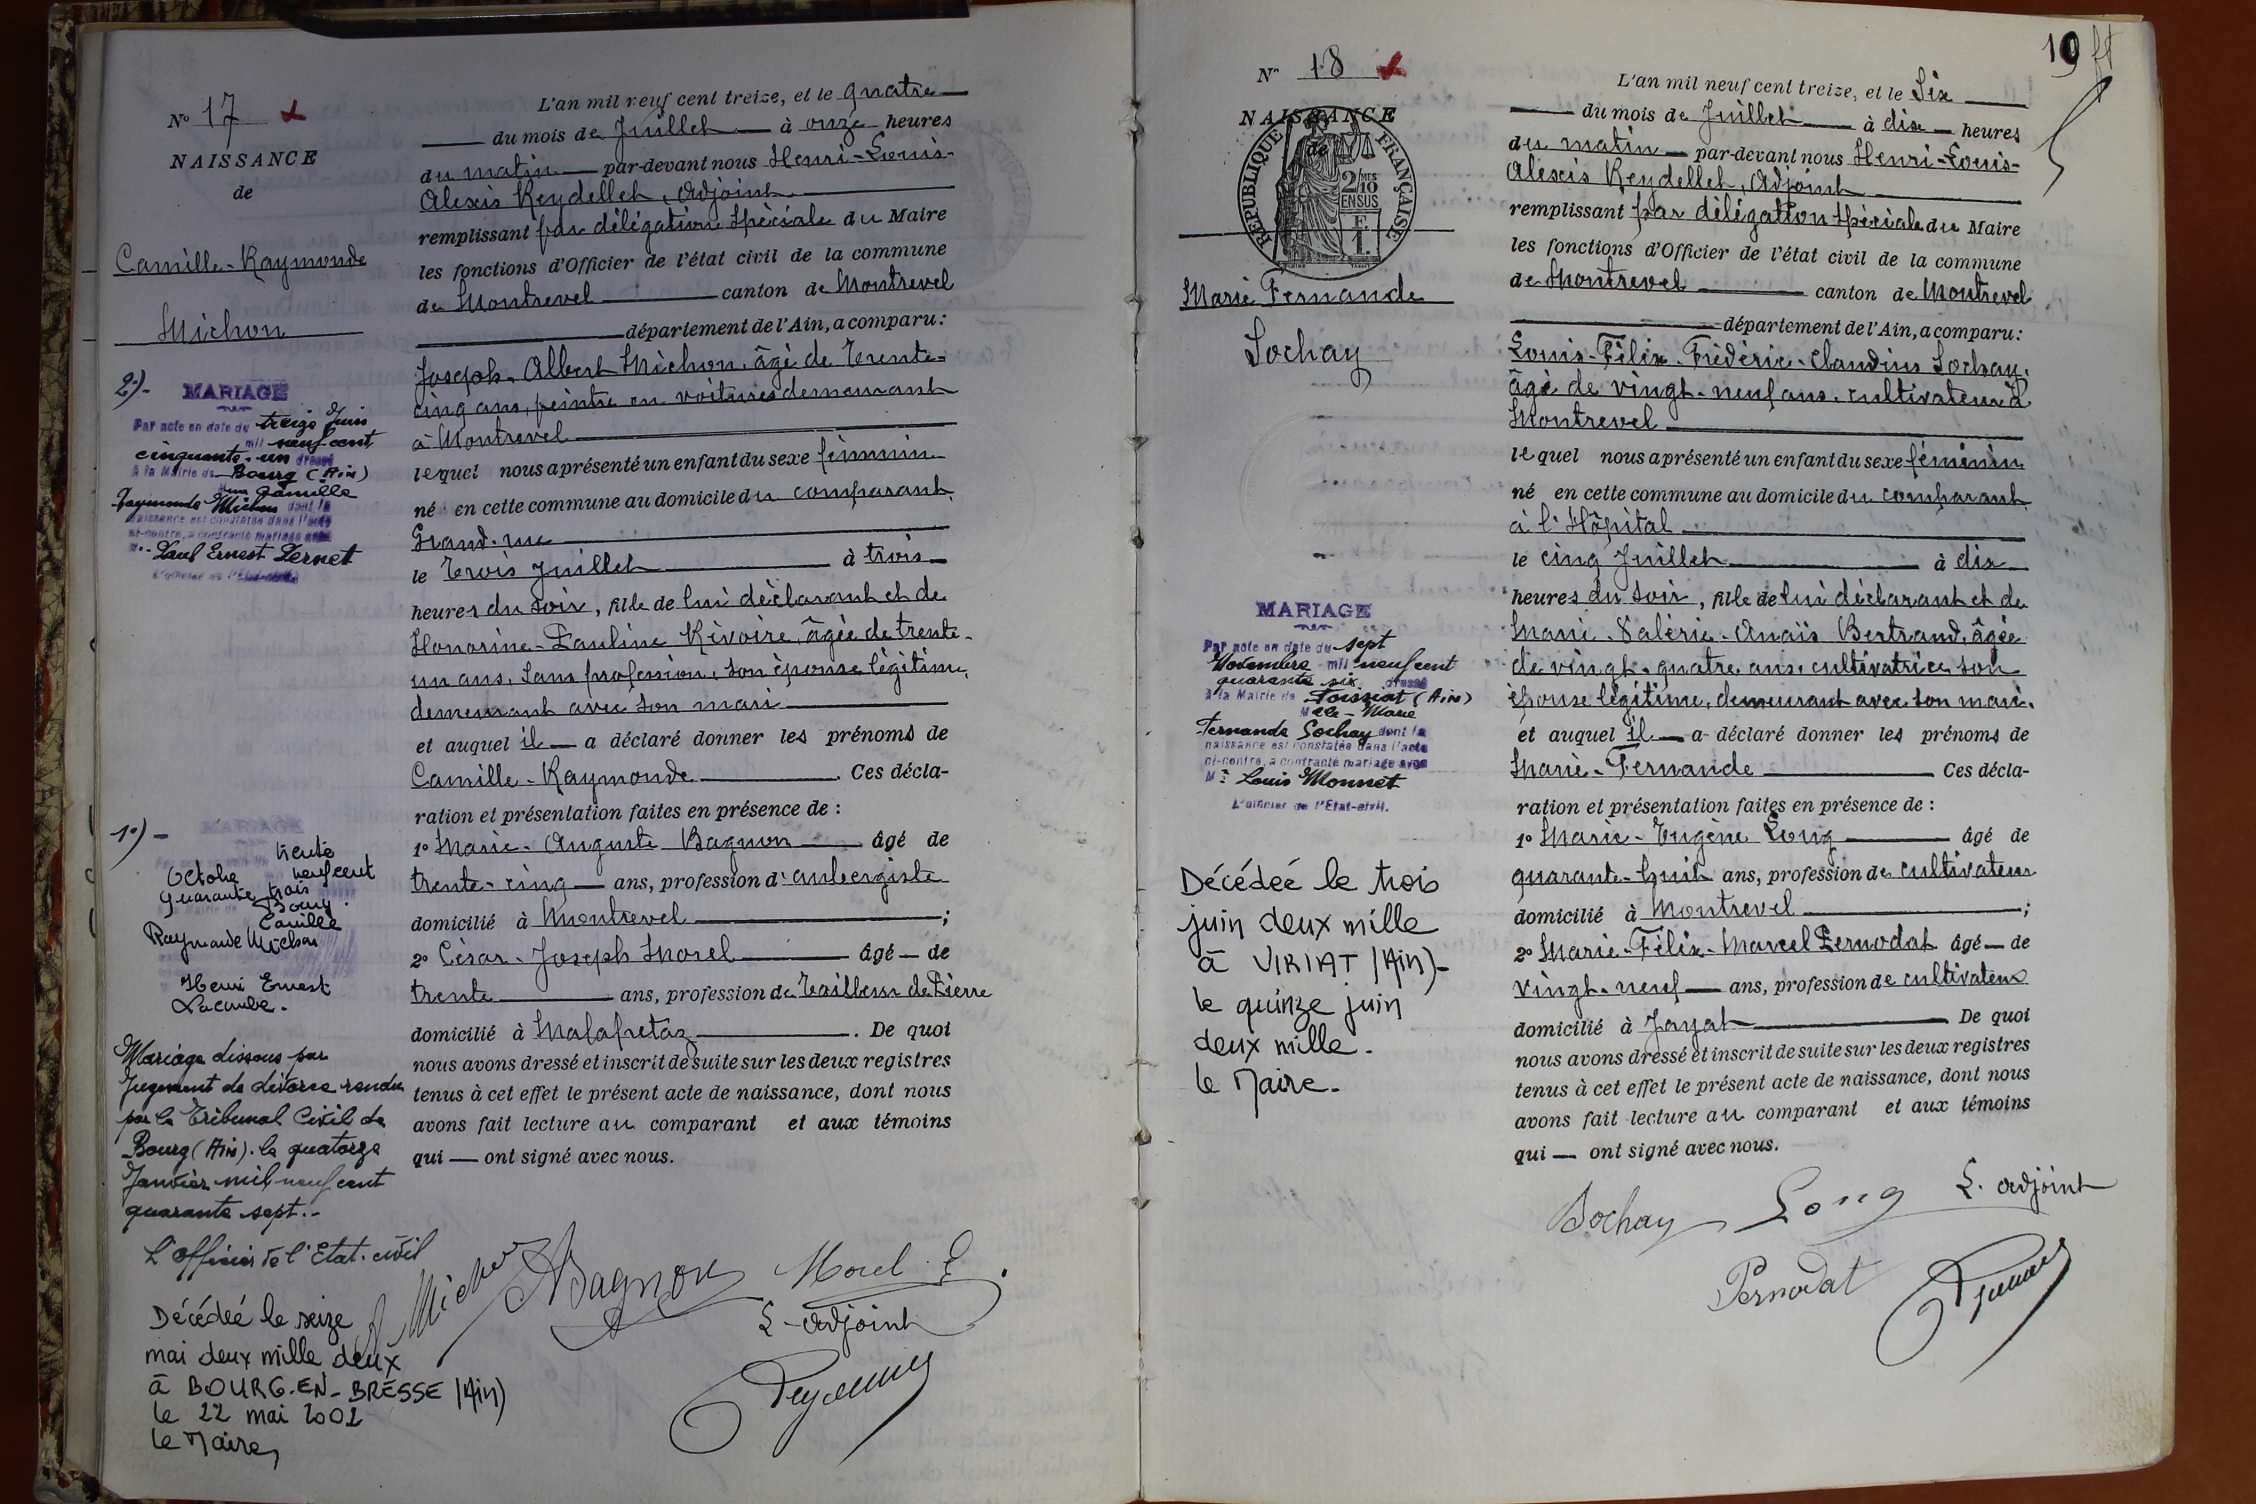 N° 17
NAISSANCE
de
Camille-Raymonde
Michon
2°)-
MARIAGE
Par acte en date du treize Juin
mil neuf cent
cinquante-un dressé
à la Mairie de Bourg (Ain)
Camille
Raymonde Michon dont la
naissance est constatée dans l'acte
ci-contre, a contracté mariage avec
Mr. Paul Ernest Pernet
L'officier de l'Etat-civil
1°)-
trente
Octobre neuf cent
quarante trois
Bourg.
Camille
Raymonde Michon
Henri Ernest
Lacombe.
Mariage dissous par
Jugement de divorce rendu
par le Tribunal Civil de
Bourg (Ain). le quatorze
Janvier mil neuf cent
quarante sept.-
L'officier de l'Etat-civil
Décédée le seize
mai deux mille deux
à BOURG-EN-BRESSE (Ain)
le 22 mai 2002
le Maire,
L'an mil neuf cent treize, et le quatre
du mois de Juillet à onze heures
du matin par-devant nous Henri-Louis-
Alexis Reydellet, Adjoint
remplissant par délégation spéciale du Maire
les fonctions d'Officier de l'état civil de la commune
de Montrevel canton de Montrevel
département de l'Ain, a comparu:
Joseph-Albert Michon, âgé de Trente-
cinq ans, peintre en voitures demeurant
à Montrevel
lequel nous a présenté un enfant du sexe féminin
né en cette commune au domicile du comparant,
Grand-rue
le Trois Juillet à trois
heures du soir, fille de lui déclarant et de
Honorine-Pauline Rivoire, âgée de trente-
un ans, sans profession, son épouse légitime,
demeurant avec son mari
et auquel il a déclaré donner les prénoms de
Camille-Raymonde. Ces décla-
ration et présentation faites en présence de :
1° Marie-Auguste Bagnon âgé de
trente-cinq ans, profession d'aubergiste
domicilié à Montrevel ;
2° César-Joseph Morel âgé de
trente ans, profession de Tailleur de Pierre
domicilié à Malafretaz. De quoi
nous avons dressé et inscrit de suite sur les deux registres
tenus à cet effet le présent acte de naissance, dont nous
avons fait lecture au comparant et aux témoins
qui ont signé avec nous.
A Michon ABagnon Morel
L'adjoint
N° 18
NAISSANCE
de
RÉPUBLIQUE FRANÇAISE
2/10 MES
EN SUS
F.
1.
Marie Fernande
Sochay
MARIAGE
Par acte en date du sept
Novembre mil neuf cent
quarante six dressé
à la Mairie de Foissiat (Ain)
Melle Marie
Fernande Sochay dont la
naissance est constatée dans l'acte
ci-contre, a contracté mariage avec
Mr Louis Monnet
L'officier de l'Etat-civil.
Décédée le trois
juin deux mille
à VIRIAT (Ain)-
le quinze juin
deux mille.
le Maire.
19
L'an mil neuf cent treize, et le Six
du mois de Juillet à dix heures
du matin par-devant nous Henri-Louis-
Alexis Reydellet, Adjoint
remplissant par délégation spéciale du Maire
les fonctions d'Officier de l'état civil de la commune
de Montrevel canton de Montrevel
département de l'Ain, a comparu:
Louis-Félix-Frédéric-Claudius Sochay,
âgé de vingt-neuf ans, cultivateur à
Montrevel
lequel nous a présenté un enfant du sexe féminin
né en cette commune au domicile du comparant
à l'Hôpital
le cinq Juillet à dix
heures du soir, fille de lui déclarant et de
Marie-Valérie-Anaïs Bertrand, âgée
de vingt-quatre ans, cultivatrice son
épouse légitime, demeurant avec son mari.
et auquel il a déclaré donner les prénoms de
Marie-Fernande Ces décla-
ration et présentation faites en présence de :
1° Marie-Eugène Long âgé de
quarante-huit ans, profession de cultivateur
domicilié à Montrevel ;
2° Marie-Félix-Marcel Pernodat âgé de
vingt-neuf ans, profession de cultivateur
domicilié à Jayat De quoi
nous avons dressé et inscrit de suite sur les deux registres
tenus à cet effet le présent acte de naissance, dont nous
avons fait lecture au comparant et aux témoins
qui ont signé avec nous.
Sochay Long L'adjoint
Pernodat